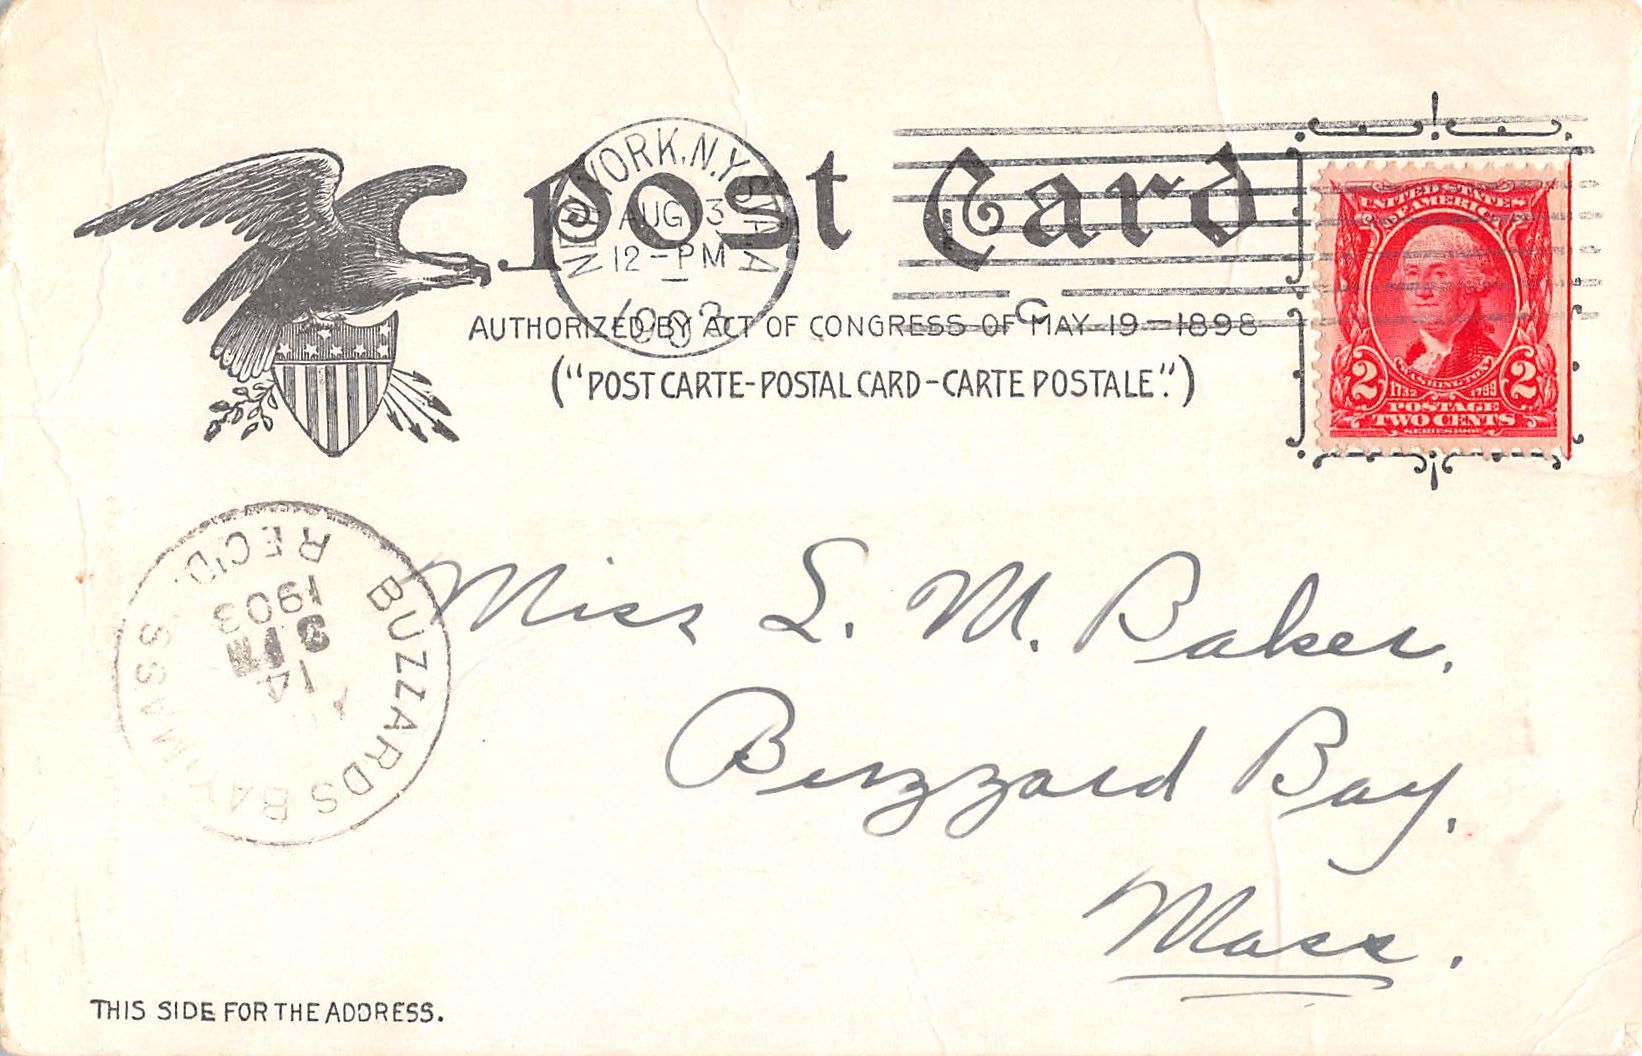 Post Card
NEW YORK, N.Y. STA. A
AUG 13
12-PM
1903
C
AUTHORIZED BY ACT OF CONGRESS OF MAY 19-1898
("POST CARTE-POSTAL CARD-CARTE POSTALE".)
UNITED STATES
OF AMERICA
WASHINGTON
1732 1799
2 2
POSTAGE
TWO CENTS
SERIES 1902
BUZZARDS BAY, MASS.
14
1903
REC'D.
Miss L. M. Baker.
Buzzard Bay.
Mass.
THIS SIDE FOR THE ADDRESS.